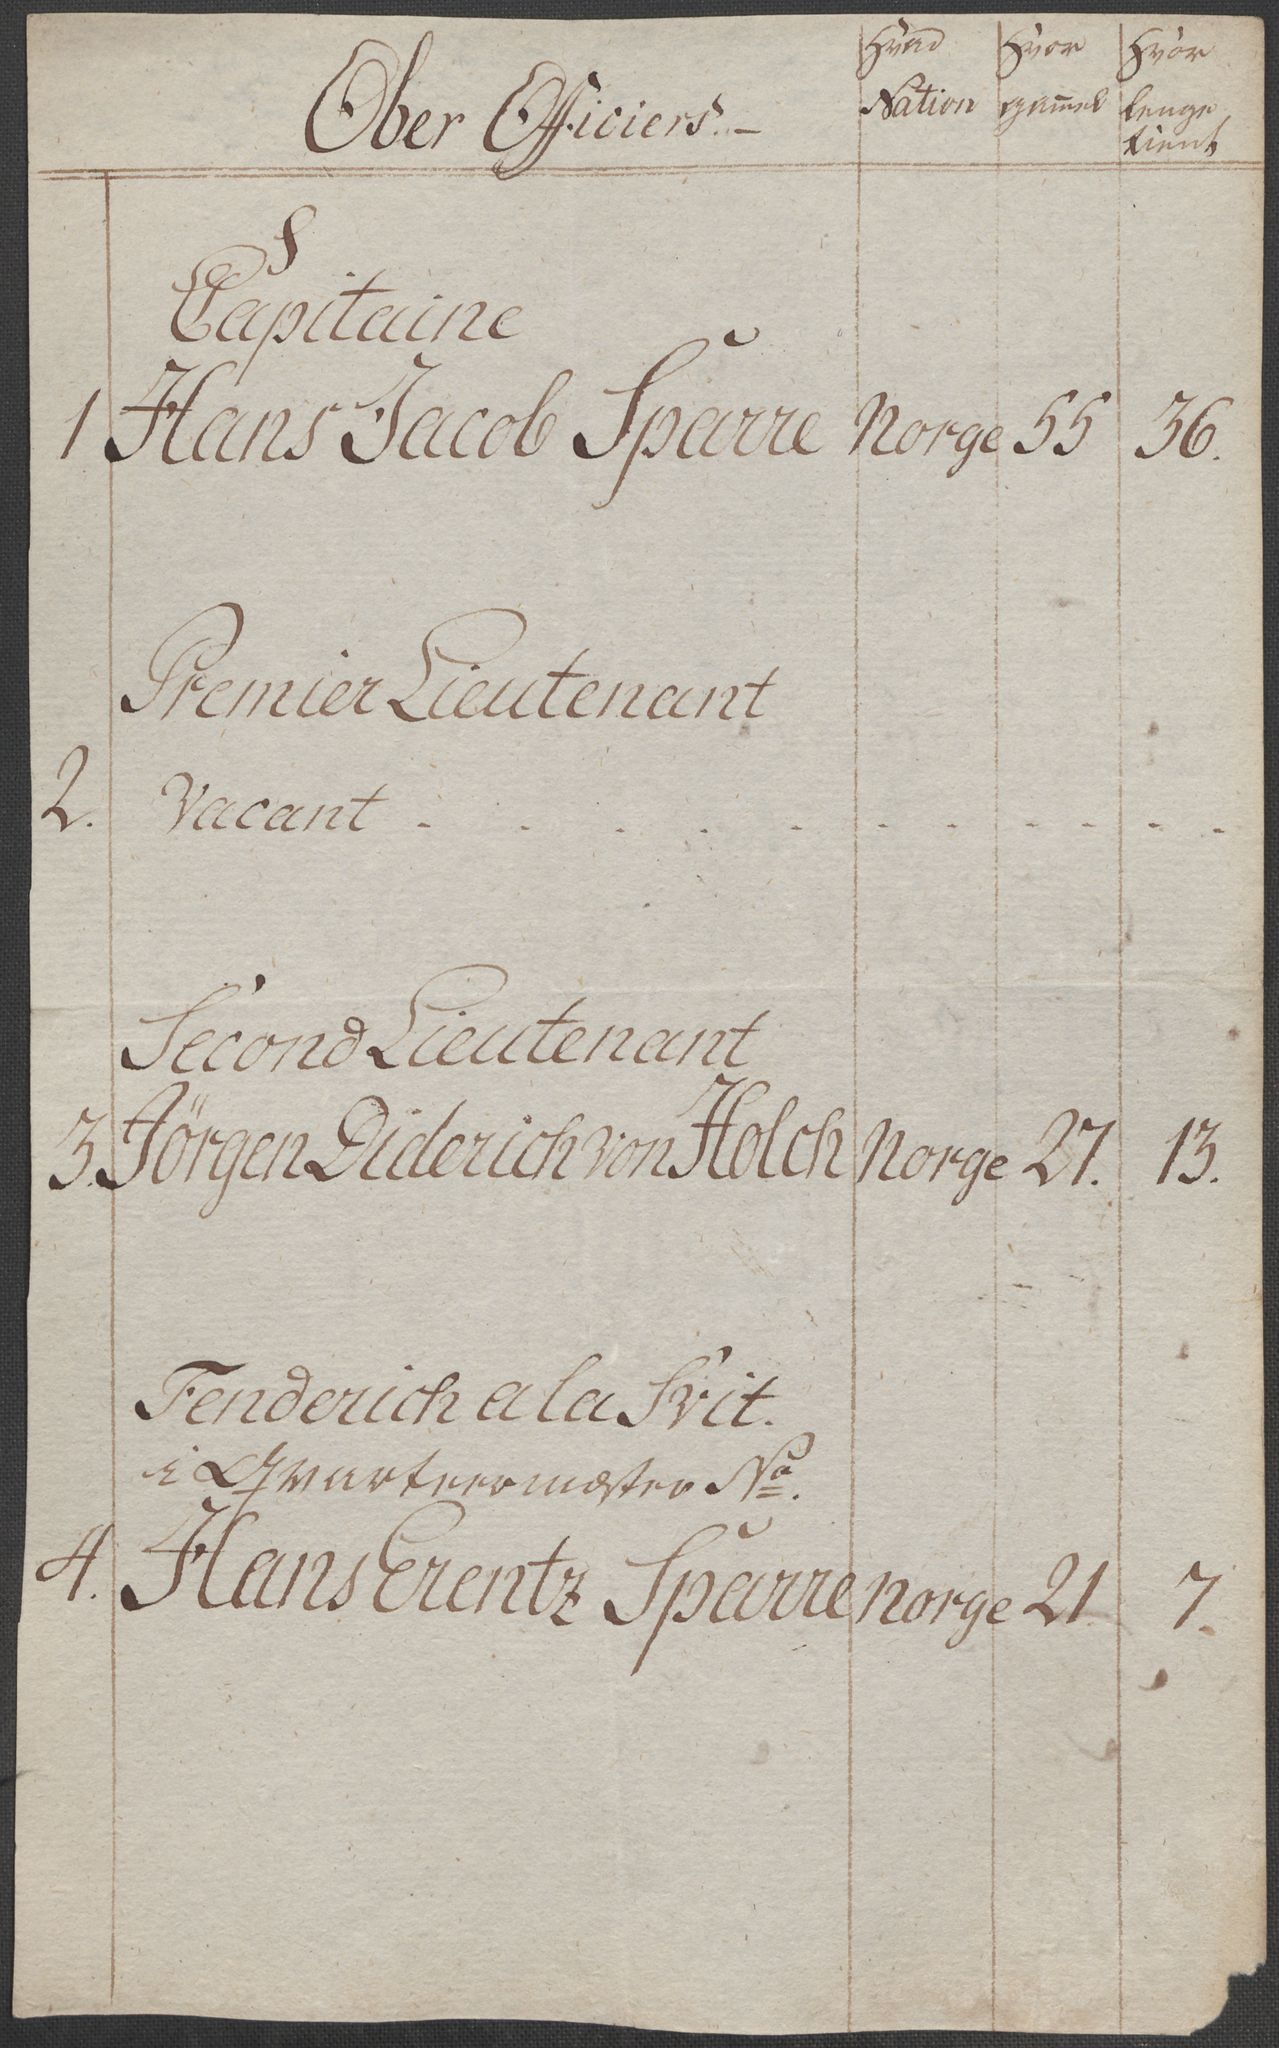 Ober Officiers.
Hvad Nation
Hvor gamel
Hvor lenge tient
Capitaine
1 Hans Jacob Sparre Norge 55 36.
Premier Lieutenant
2. Vacant . . . . . . . . . . .
Second Lieutenant
3. Jörgen Diderich von Holch Norge 27. 13.
Fenderich a la Svit.
i Qvarteermæster No.
4. Hans Erentz Sparre Norge 21 7.